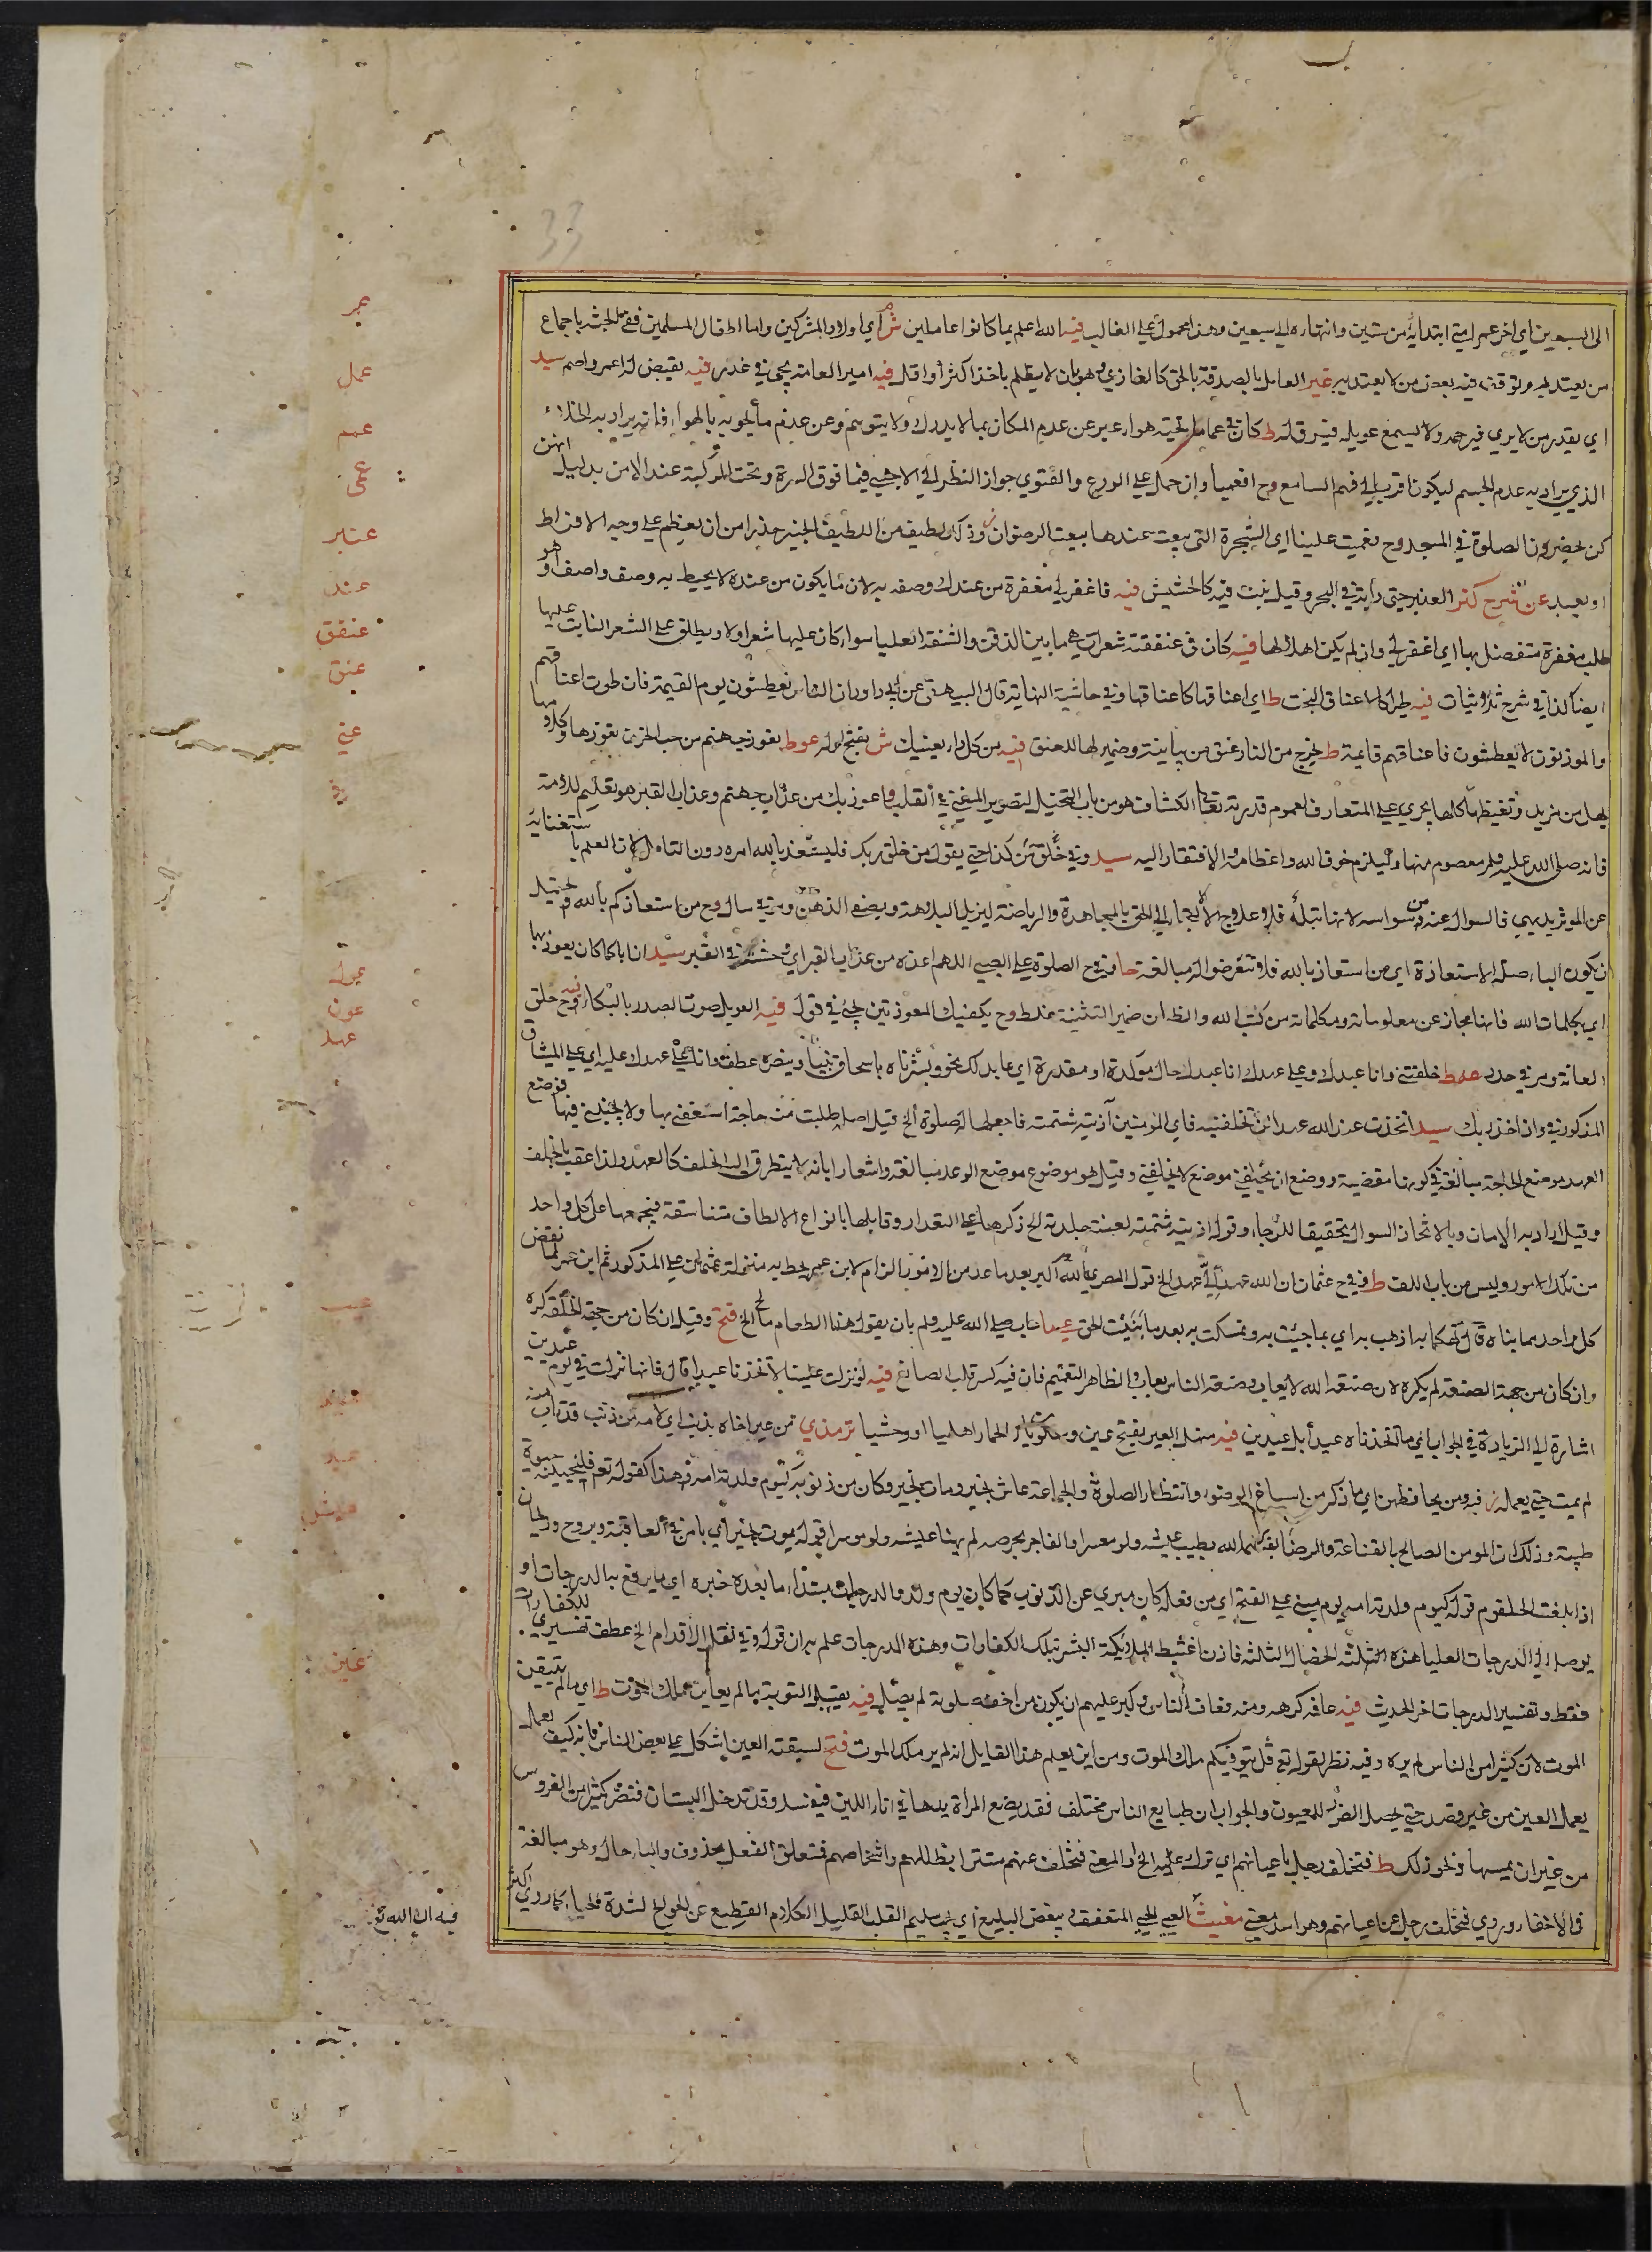 33
الى السبعين اي اخر عمر امتي ابتداؤه من ستين وانتهاره الى سبعين وهذا محمول على الغالب فيه الله اعلم بما كانوا عاملين ش اي اولاد المشركين واما اطفال المسلمين ففي الجنة باجماع
من يعتد به وتوقف فيه بعض من لا يعتد به غير العامل بالصدقة بالحق كالغازي وهو بان لا يظلم باخذ اكثر او اقل فيه امير العامة يجئ في غدر فيه يقيض له اعمى واصم سيد
اي يقدر من لا يرى فيرحمه ولا يسمع عويله فيرق له ط كان في عماء ما تحته هواء عبر عن عدم المكان بما لا يدرك ولا يتوهم وعن عدم ما يحويه بالهواء فانه يراد به الخلاء
الذي يراد به عدم الجسم ليكون اقرب الى فهم السامع وح افعميا وان حمل على الورع والفتوى جواز النظر الى الاجنبي فيما فوق السرة وتحت الركبة عند الامن بدليل انهن
كن يحضرون الصلوة في المسجد وح فعميت علينا اي الشجرة التي بيعت عندها بيعت الرضوان وذلك لطيفة من اللطيف الخبير حذرا من ان يعظم على وجه الافراط
او يعبد عن شرح كنز العنبر حتى رأيته في البحر وقيل نبت فيه كالحشيش فيه فاغفر لي مغفرة من عندك وصفه به لان ما يكون من عنده لا يحيط به وصف واصف او هو
طلب مغفرة متفضل بها اي اغفر لي وان لم يكن اهلا لها فيه كان في عنفقته شعرات هي ما بين الذقن والشفة العليا سواء كان عليها شعر اولا ويطلق على الشعر النابت عليها
ايضا كذا في شرح ثلاثيات فيه طير كاعناق البخت ط اي اعناقها كاعناقها وفي حاشية النهاية قال البيهقي عن ابي داود ان الناس يعطشون يوم القيمة فان طوت اعناقهم
والموذنون لا يعطشون فاعناقهم قايمة ط يخرج من النار عنق من بيانية وضمير لها للعنق فيه من كل داء يعينيك ش بفتح اوله عوط نعوذ بجهنم من جب الحزن تعوذها وكلامها
بهل من مزيد وتغيظها كلها يجري على المتعارف لعموم قدرته تعالى الكشاف هو من باب التخيل لتصوير المعنى في القلب واعوذ بك من عذاب جهنم وعذاب القبر هو تعليم للامة
فانه صلى الله عليه وسلم معصوم منها وليلزم خوف الله واعظامه والافتقار اليه سيد وفي خلق من كذا حتى يقول من خلق ربك فليستعذ بالله امره دون التامل لان العلم باستغنائه
عن الموثر بديهي فالسوال عنه وسواسه لانهاية له فلا علاج الا الالتجاء الى الحق بالمجاهدة والرياضة ليزيل البلادة ويصفى الذهن ومر في سال وح من استعاذكم بالله فيحتمل
ان يكون الباء صلة الاستعاذة اي من استعاذ بالله فلا تتعرضوا له مبالغة حا وفي ح الصلوة على الصبي اللهم اعذه من عذاب القبر اي وحشته في القبر سيد ان اباكما كان يعوذ بها
اي بكلمات الله فانها مجاز عن معلوماته ومكلماته من كتب الله والظ ان ضمير التثنية غلط وح يكفيك المعوذتين يجئ في قول فيه العويل صوت الصدر بالبكاء فيه وح حلق
العانة ومر في حدد عهط خلقتني وانا عبدك وعلى عهدك انا عبدك حال موكدة او مقدرة اي عابد لك نحو وبشرناه باسحاق نبيا وينصره عطف وانا على عهدك وعليه اي على الميثاق
المذكور في واذ اخذ ربك سيد اتخذت عند الله عهدا لن تخلفنيه فاي المؤمنين آذيته شتمته فاجعلها له صلوة الخ قيل اصله طلبت منك حاجة اسعفني بها ولا تخيبني فيها فوضع
العهد موضع الحاجة مبالغة في كونها مقضية ووضع لن تخلفني موضع لا تخيبني وقيل هو موضوع موضع الوعد مبالغة واشعارا بانه لا يتطرق اليه الخلف كالعهد ولذا عقبه بالخلف
وقيل اراد به الامان وبالاتخاذ السوال تحقيقا للرجاء وقوله اذيته شتمته لعنته جلدته الخ ذكرها على التعداد وقابلها بانواع الالطاف متناسقة فيجمعها على كل واحد
من تلك الامور وليس من باب اللف ط وفي ح عثمان ان الله عهد الي عهد الخ قول المصري الله اكبر بعد ما عد من الامور الزام لابن عمر بحطيه منزلة عثمان على المذكور ثم ابن عمر لما نقض
كل واحد بما بناه قال تهكما به اذهب به اي بما جئت به وتمسكت به بعد ما بينت الحق عيب عاب صلى الله عليه وسلم بان يقول هذا الطعام مالح الخ فتح وقيل ان كان من جهة الخلقة كره
وان كان من جهة الصنعة لم يكره لان صنعة الله لا يعاب وصنعة الناس يعاب والظاهر التعميم فان فيه كسر قلب الصانع فيه لو نزلت علينا لاتخذنا عيدا قال فانها نزلت في يوم عيدين
اشارة الى الزيادة في الجواب اي ما اتخذناه عيدا بل عيدين فيه مثل العير بفتح عين وسكون ياء الحمار اهليا او وحشيا ترمذي من عير اخاه بذنب اي لامه من ذنب قد تاب منه
لم يمت حتى يعمله فيه ومن يحافظهن اي ما ذكر من اسباغ الوضوء وانتظار الصلوة والجماعة عاش بخير ومات بخير وكان من ذنوبه كيوم ولدته امه وهذا كقوله تعالى فلنحيينه حيوة
طيبة وذلك ان المومن الصالح بالقناعة والرضا بقسمة الله يطيب عيشه ولو معسرا والفاجر بحرصه لم يهنا عيشه ولو موسرا قوله يموت بخير اي يامن في العاقبة وبروح وريحان
اذا بلغت الحلقوم قوله كيوم ولدته امه يوم مبني على الفتح اي من فعله كان مبرئ عن الذنوب كما كان يوم ولد والدرجات مبتداء ما بعده خبره اي ما يرفع به الدرجات او
يوصل الى الدرجات العليا هذه الثلثة الخصال الثلثة فاذن اغتبط الملائكة البشر بتلك الكفارات وهذه الدرجات علم به ان قوله وفي نقل الاقدام الخ عطف تفسيري للكفارات
فقط وتفسير الدرجات اخر الحديث فيه عافه كرهه ومنه فعاف الناس وكبر عليهم ان يكون من اخفه سلوبة لم يصل فيه يقبل التوبة ما لم يعاين ملك الموت ط اي ما لم يتيقن
الموت لان كثيرا من الناس لم يره وفيه نظر لقوله تع قل يتوفيكم ملك الموت ومن اين يعلم هذا القايل انه لم ير ملك الموت فتح لسبقته العين اشكل على بعض الناس بانه كيف يعمل
يعمل العين من غير قصد حتى يحصل الضرر للمعيون والجواب ان طبايع الناس مختلف فقد يضع المرأة يدها في اناء اللبن فيفسد وقد تدخل البستان فتضر كثيرا من الغروس
من غير ان يمسها ونحو ذلك ط فتخلف رجل باعيانهم اي ترك عليه الخ والمعنى فتخلف عنهم مستترا بظلالهم واشخاصهم فتعلق الفعل محذوف والباء حال وهو مبالغة
في الاخفاء وروي فتخلف رجل عن اعيانهم وهو اسد معنى مغيث العي الحيي المتعفف ويبغض البليغ اي يحب سليم القلب القليل الكلام القطيع عن الحوائج لشدة الحياء كما روي اكثر
عمر
عمل
عمم
عمى
عنبر
عند
عنفق
عنق
عنى
عوذ
عول
عون
عهد
عيب
عيد
عير
عيش
عين
فيه ان الله تع